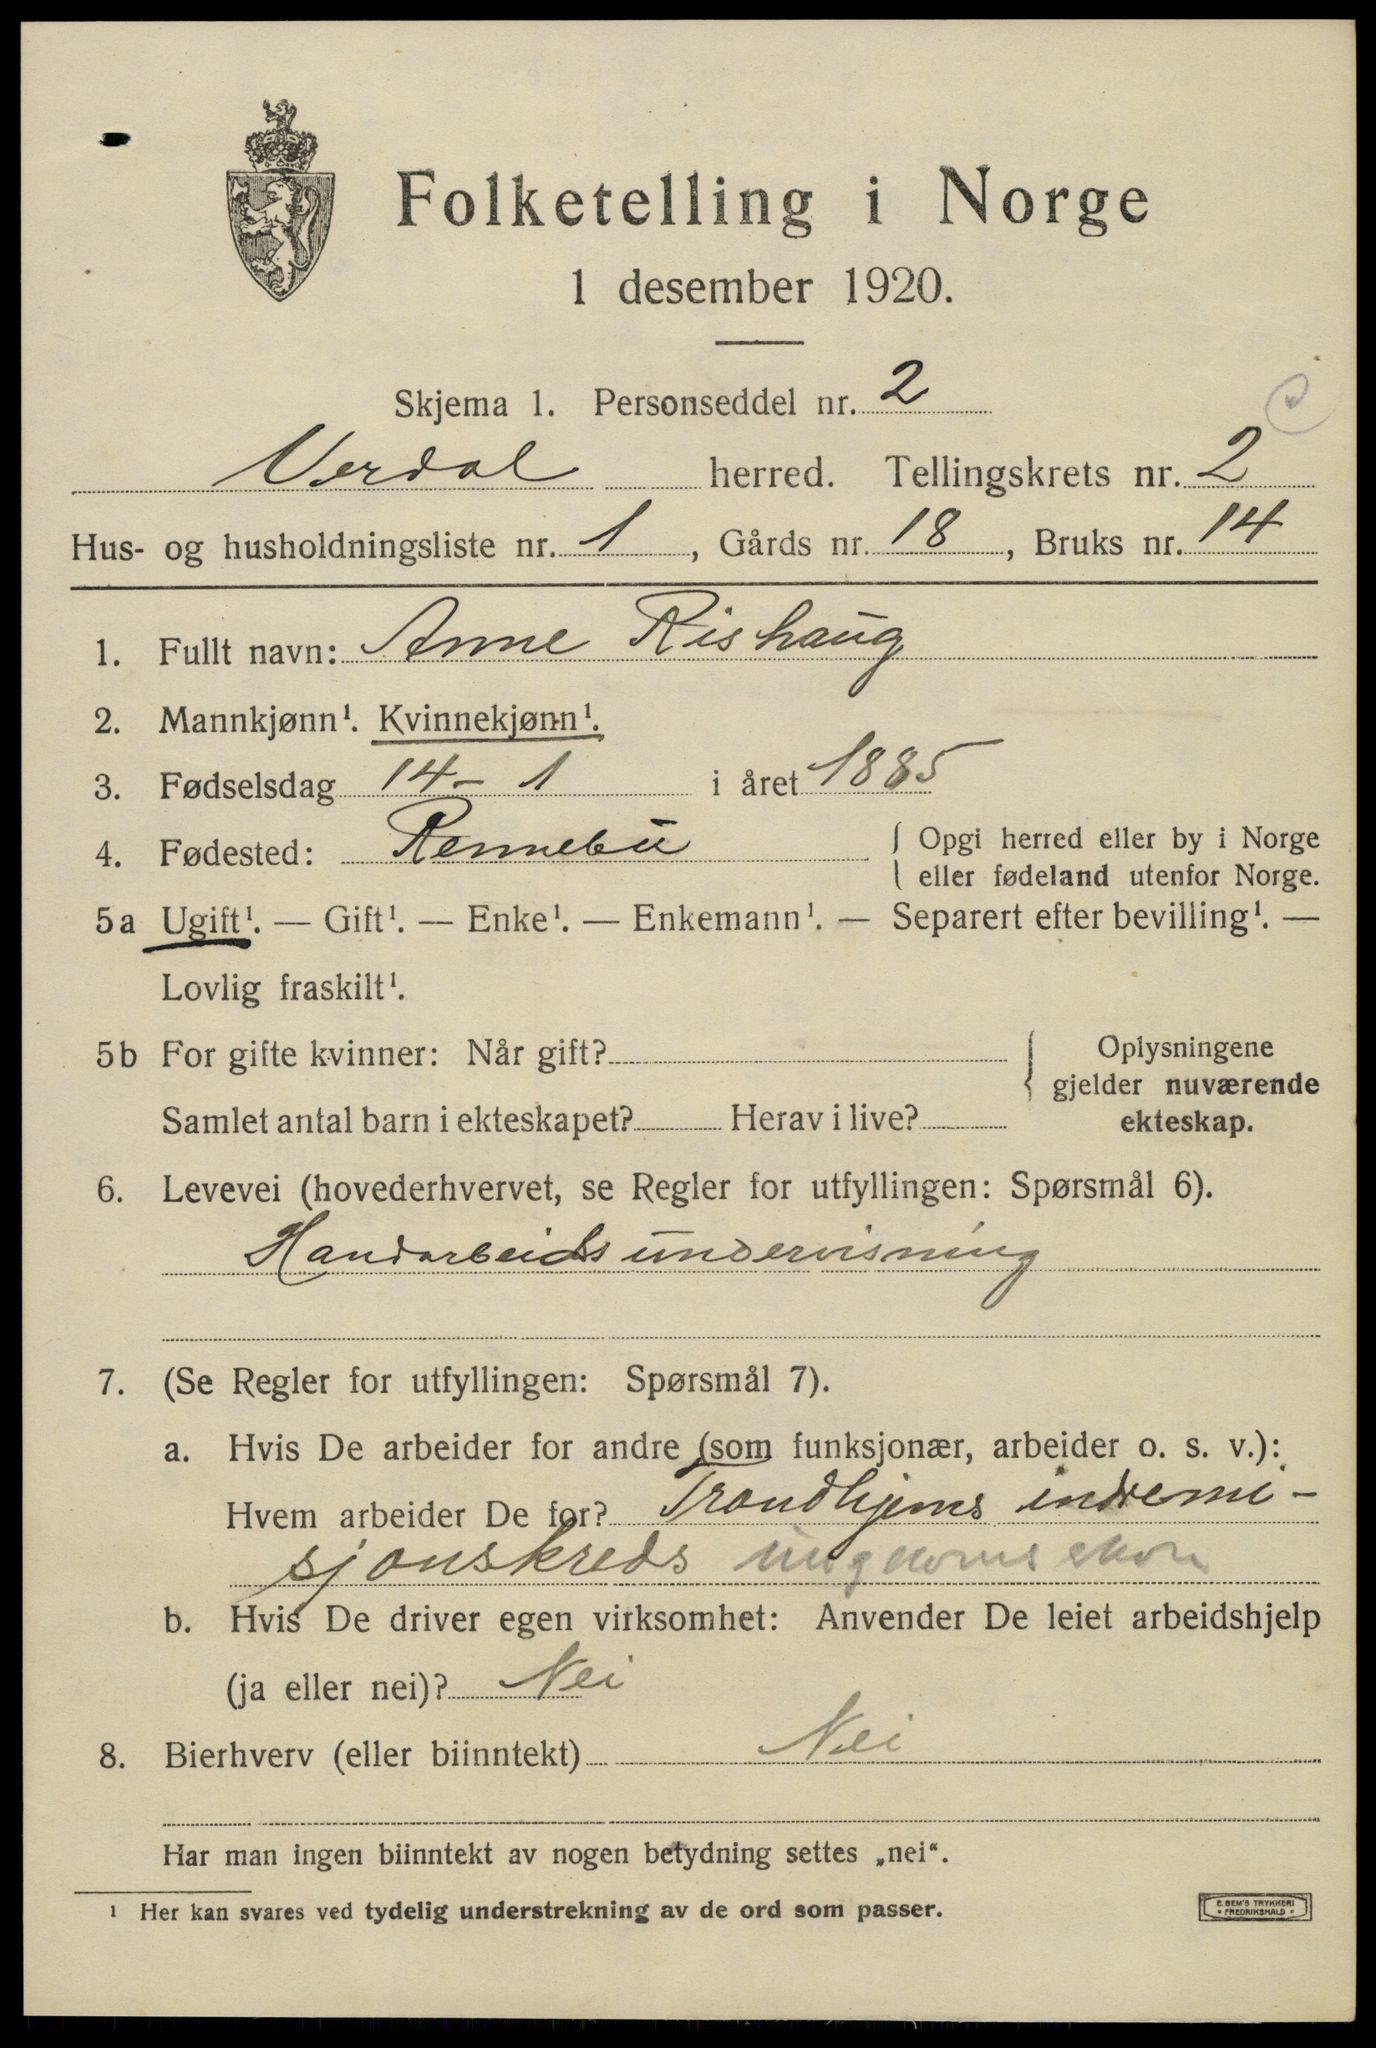 Folketelling i Norge
1 desember 1920.
Skjema 1. Personseddel nr. 2
Verdal herred. Tellingskrets nr. 2
Hus- og husholdningsliste nr. 1, Gårds nr. 18, Bruks nr. 14
1. Fullt navn: Anne Rishaug
2. Mannkjønn¹. Kvinnekjønn¹.
3. Fødselsdag 14 - 1 i året 1885
4. Fødested: Rennebu { Opgi herred eller by i Norge
eller fødeland utenfor Norge.
5a Ugift¹. — Gift¹. — Enke¹. — Enkemann¹. — Separert efter bevilling¹. —
Lovlig fraskilt¹.
5b For gifte kvinner: Når gift? { Oplysningene
gjelder nuværende
Samlet antal barn i ekteskapet? Herav i live? ekteskap.
6. Levevei (hovederhvervet, se Regler for utfyllingen: Spørsmål 6).
Handarbeidsundervisning
7. (Se Regler for utfyllingen: Spørsmål 7).
a. Hvis De arbeider for andre (som funksjonær, arbeider o. s. v.):
Hvem arbeider De for? Trondhjems indremi-
sjonskreds
b. Hvis De driver egen virksomhet: Anvender De leiet arbeidshjelp
(ja eller nei)? Nei
8. Bierhverv (eller biinntekt) Nei
Har man ingen biinntekt av nogen betydning settes „nei“.
¹ Her kan svares ved tydelig understrekning av de ord som passer.
E. SEM'S TRYKKERI
• FREDRIKSHALD •